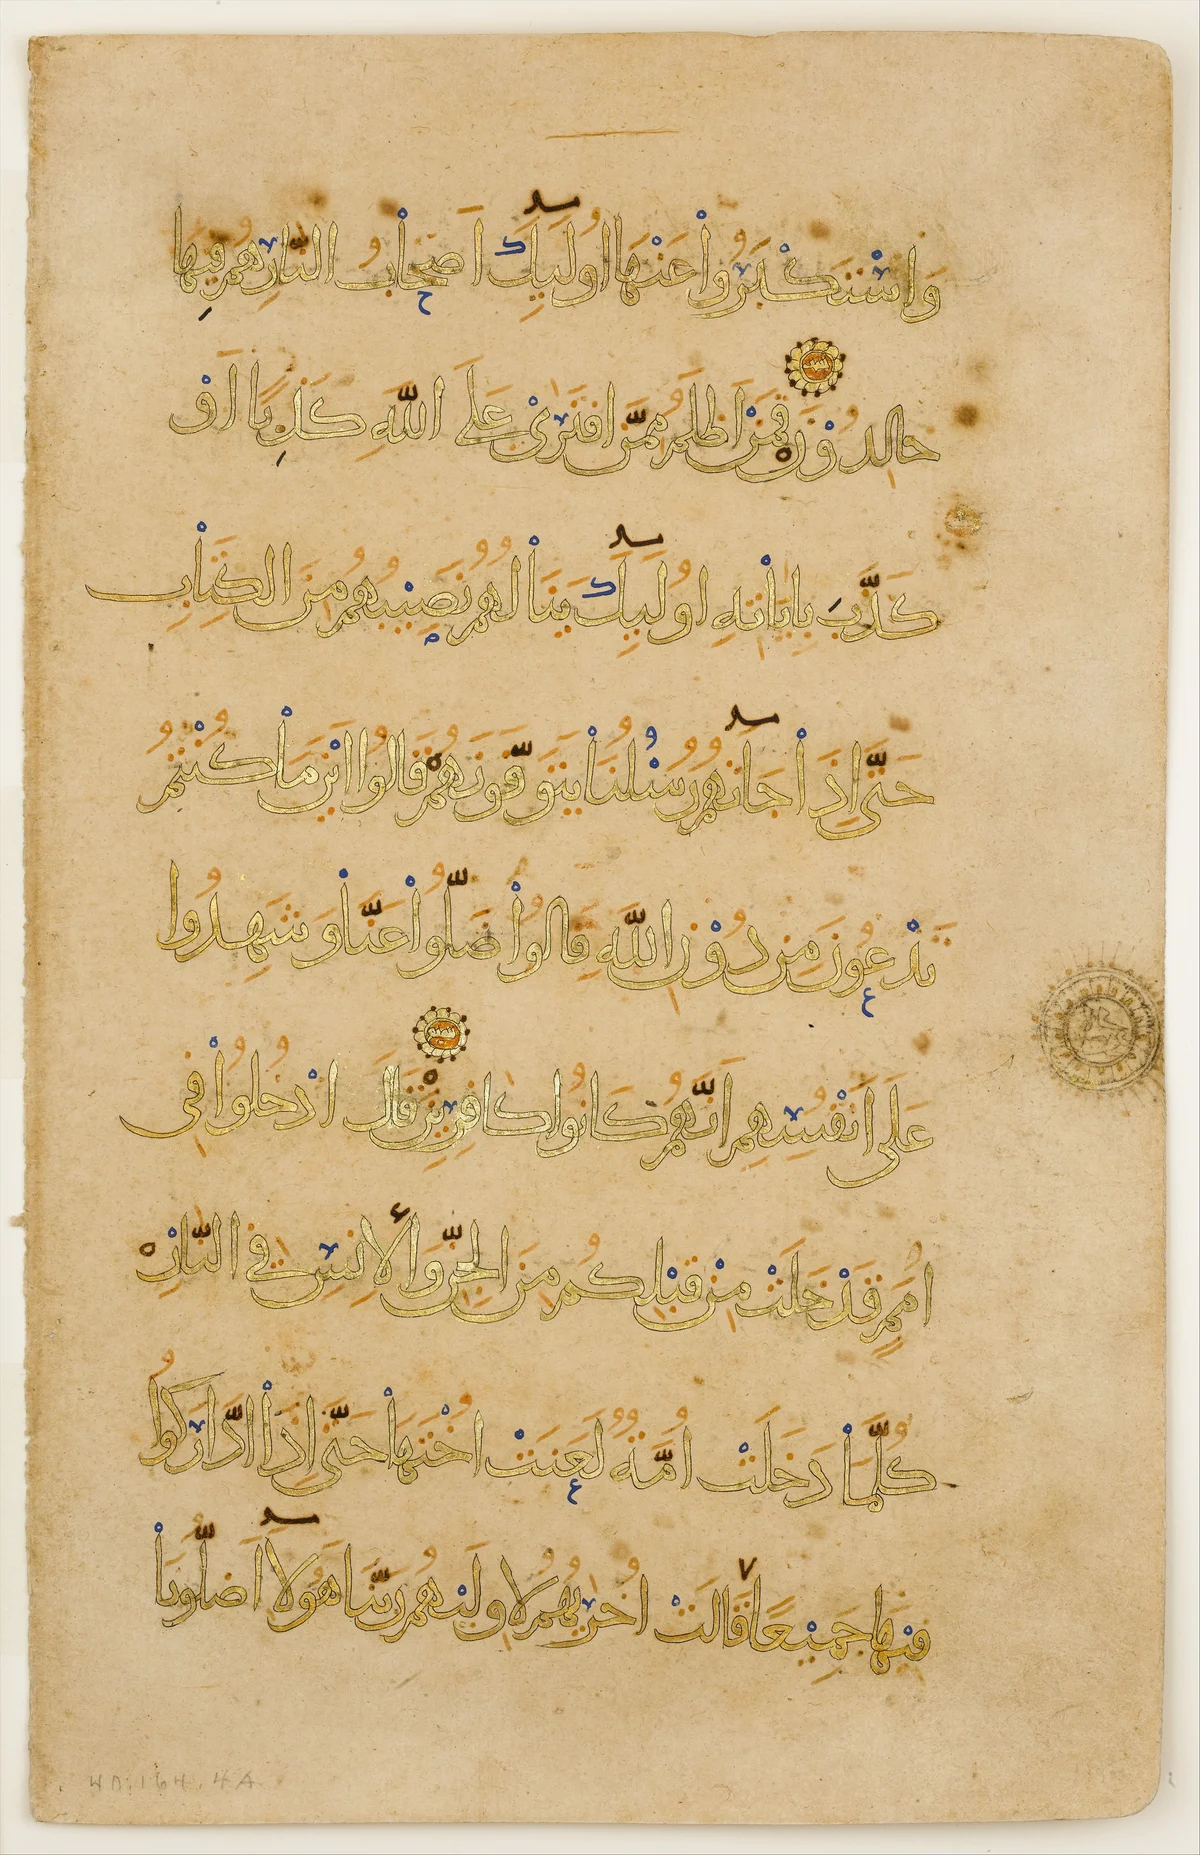 وَاسْتَكْبَرُوا عَنْهَا اُولٰٓئِكَ اَصْحَابُ النَّارِ هُمْ فِيهَا
خَالِدُونَ فَمَنْ اَظْلَمُ مِمَّنِ افْتَرَىٰ عَلَى اللّٰهِ كَذِبًا اَوْ
كَذَّبَ بِاٰيَاتِهِ اُولٰٓئِكَ يَنَالُهُمْ نَصِيبُهُمْ مِنَ الْكِتَابِ
حَتَّىٰ اِذَا جَآءَتْهُمْ رُسُلُنَا يَتَوَفَّوْنَهُمْ قَالُوا اَيْنَ مَا كُنْتُمْ
تَدْعُونَ مِنْ دُونِ اللّٰهِ قَالُوا ضَلُّوا عَنَّا وَشَهِدُوا
عَلَىٰ اَنْفُسِهِمْ اَنَّهُمْ كَانُوا كَافِرِينَ قَالَ ادْخُلُوا فِي
اُمَمٍ قَدْ خَلَتْ مِنْ قَبْلِكُمْ مِنَ الْجِنِّ وَالْاِنْسِ فِي النَّارِ
كُلَّمَا دَخَلَتْ اُمَّةٌ لَعَنَتْ اُخْتَهَا حَتَّىٰ اِذَا ادَّارَكُوا
فِيهَا جَمِيعًا قَالَتْ اُخْرٰيهُمْ لِاُولٰيهُمْ رَبَّنَا هٰٓؤُلَآءِ اَضَلُّونَا
W.D.164.4A